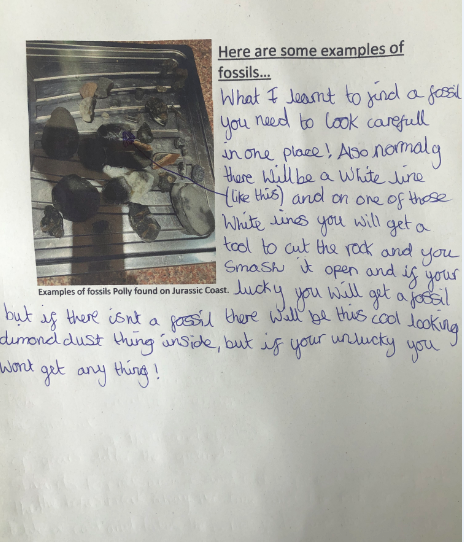 Here are some examples of
fossils...
What I learnt to find a fossil
you need to look carefull
in one place! Also normaly
there will be a white line
(like this) and on one of those
white lines you will get a
tool to cut the rock and you
smash it open and if your
Examples of fossils Polly found on Jurassic Coast.
lucky you will get a fossil
but if there isnt a fossil there will be this cool looking
dimond dust thing inside, but if your unlucky you
wont get any thing!